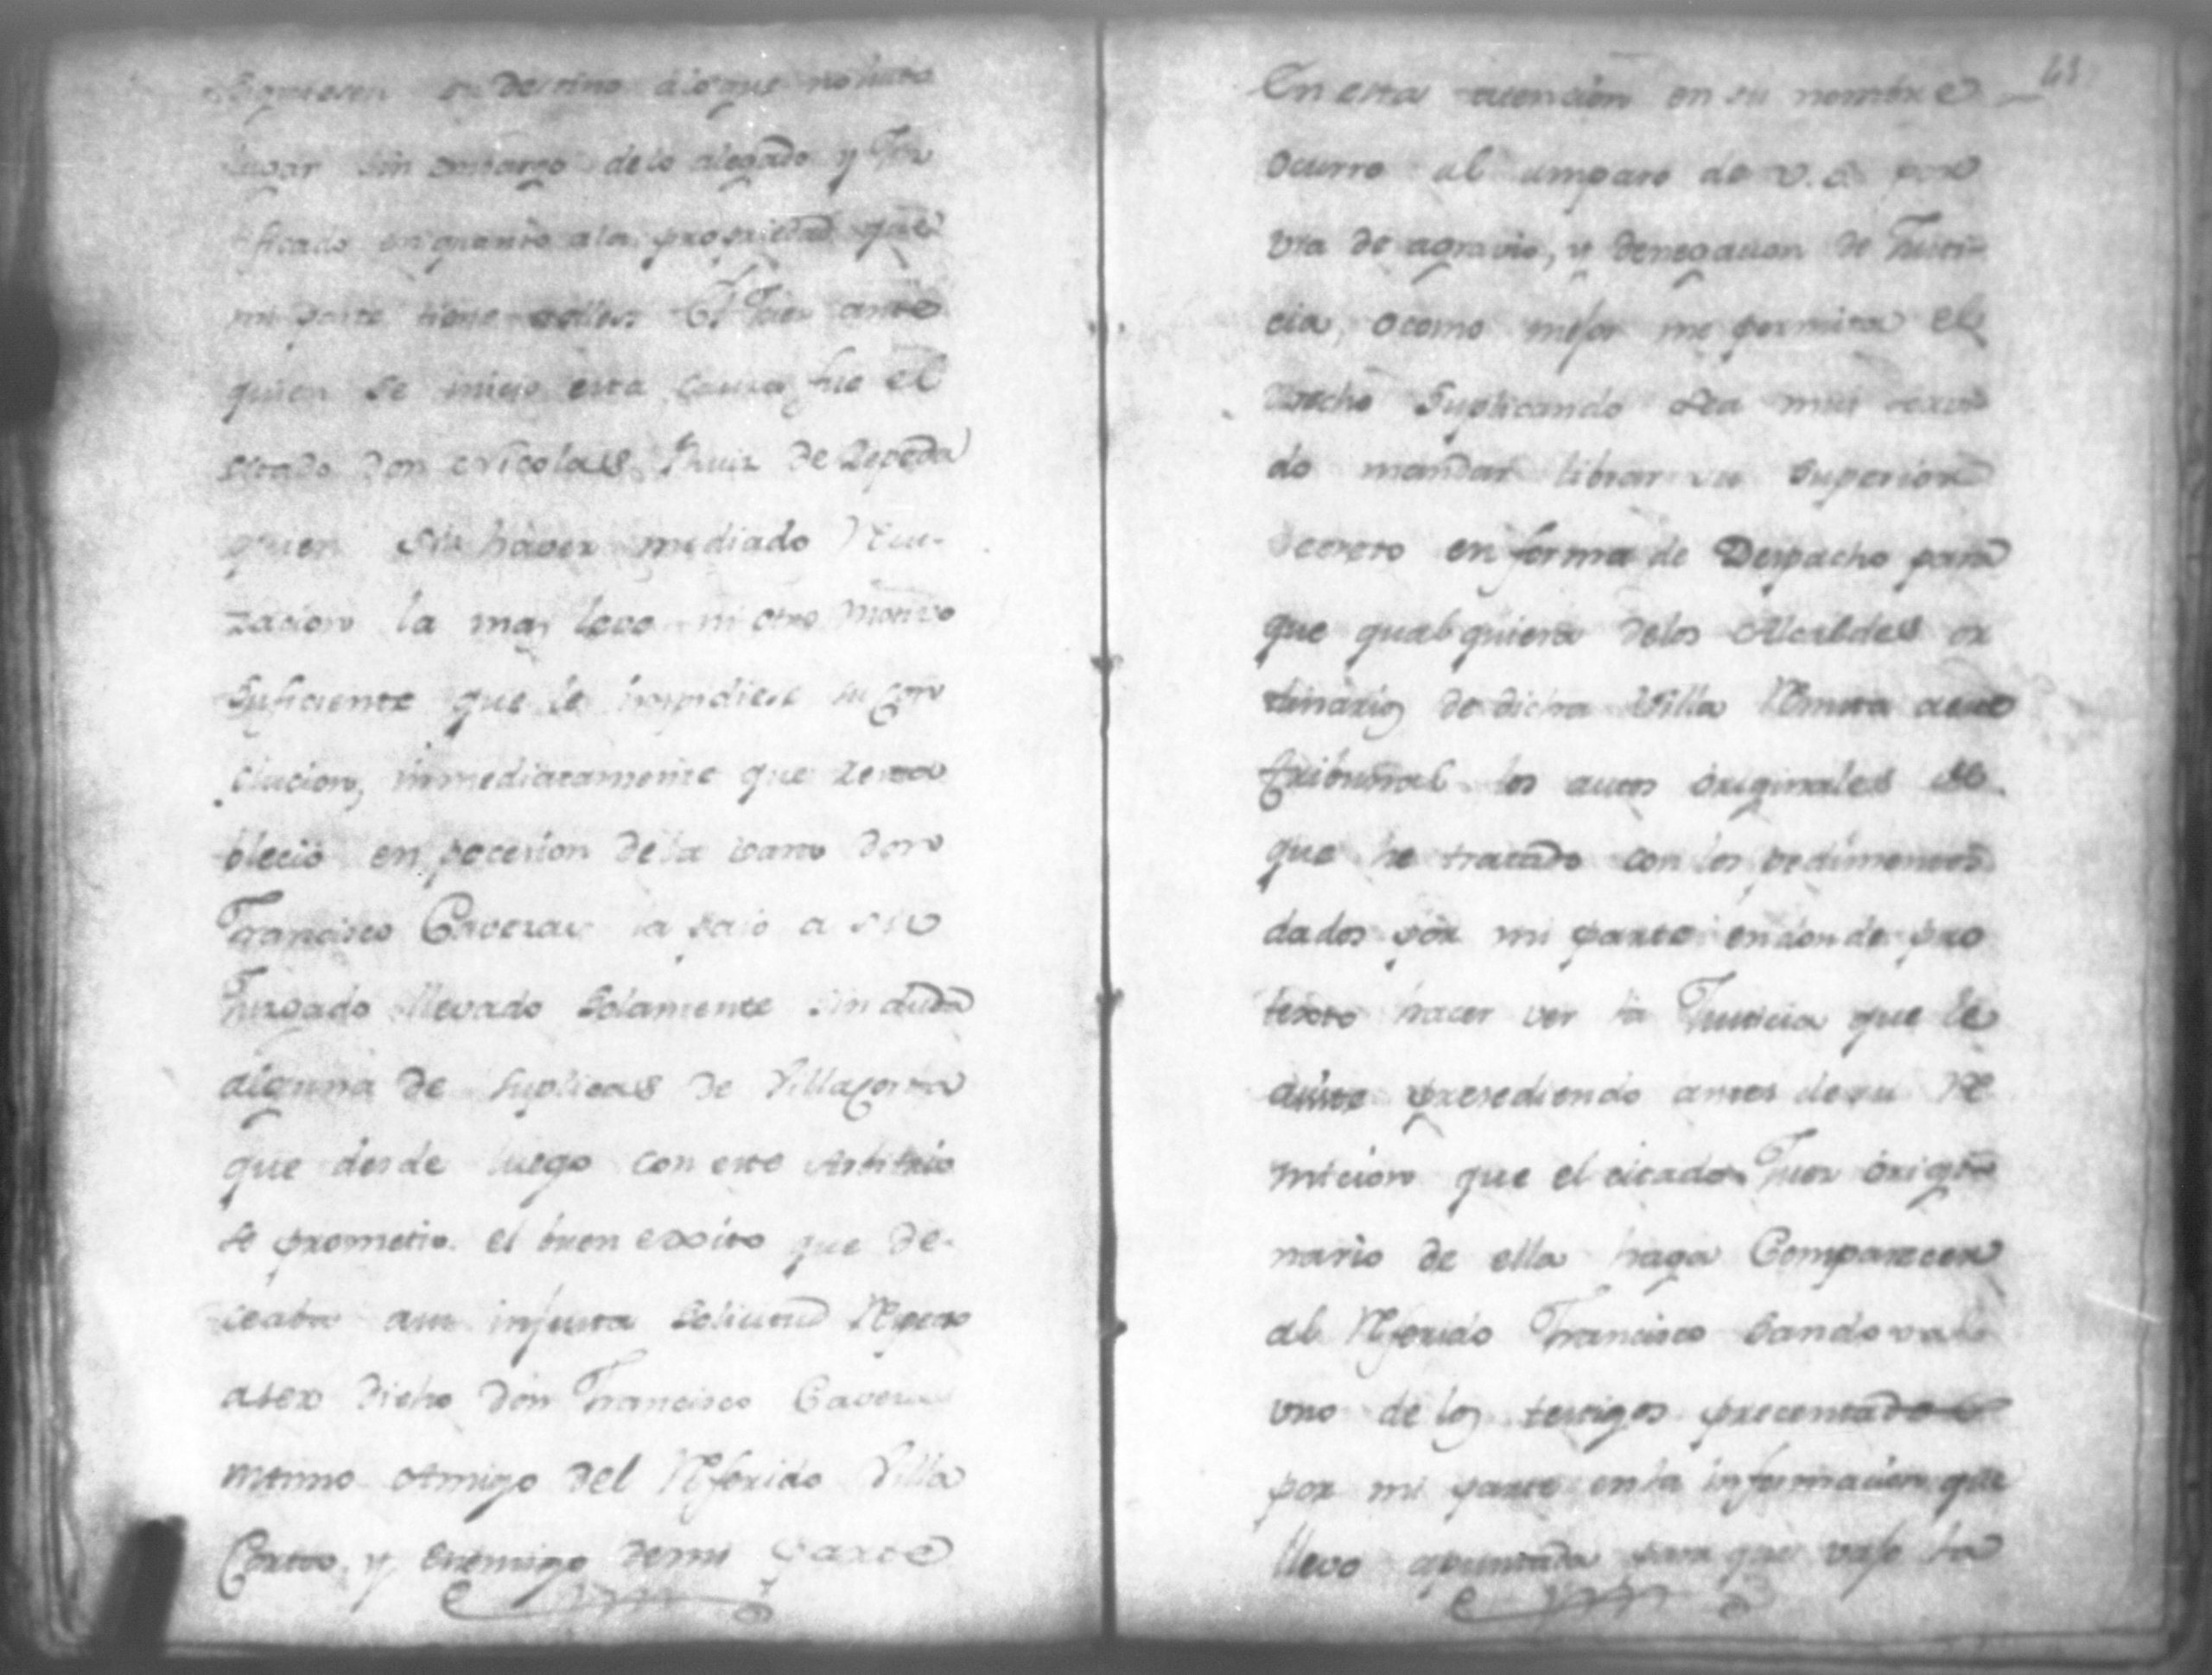 su destino á lo que no huvo
lugar sin embargo de lo alegado y Jus
tificado en quanto a la propriedad que
mi parte tiene a ellos El Juez ante
quien se inicio esta causa fue el
citado don Nicolas Ruiz de Zepeda
quien sin haver mediado recu-
zacion la mas leve ni otro motivo
suficiente que le impidiese su con
clucion, inmediatamente que
blecio en pocesion de la vara don
Francisco Taveras la pasó a su
Juzgado llevado solamente sin duda
alguna de suplicas de Villacorta
que desde luego con este Arbitrio
se prometio el buen exxito que de-
ceaba a su injusta solicitud Respecto
a ser dicho don Francisco Tavera
intimo Amigo del Referido Villa
Corta, y enemigo de mi parte
63
En esta atencion en su nombre
ocurro al amparo de V.A. por
via de agravio, y denegacion de Justi-
cia, o como mejor me permita el
drecho Suplicando sea mui servi
do mandar librar su Superior
Decreto en forma de Despacho para
que qualquiera de los Alcaldes or
dinarios de dicha Villa Remita a este
tribunal los autos originales de
que he tratado con los pedimentos
dados por mi parte en donde pro
texto hacer ver la Justicia que le
asiste presediendo antes de su Re
micion que el citado Juez origi
nario de ella haga Comparecer
al Referido Francisco Sandoval
uno de los testigos precentados
por mi parte en la informacion que
llevo apuntada para que vajo la